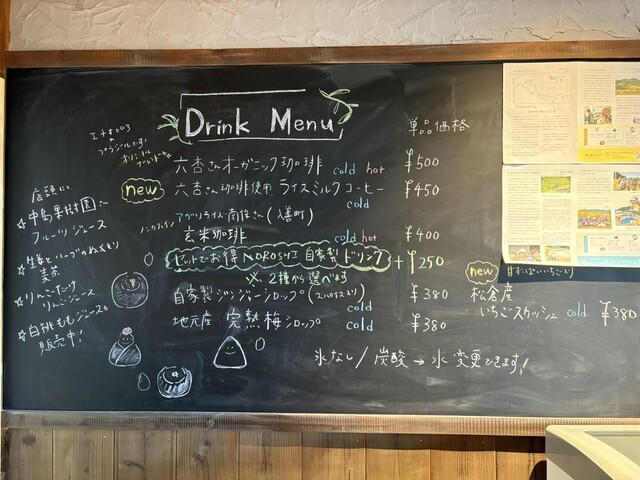 Drink Menu
単品価格
エチオピア
ブラジルです!
オリジナル
ブレンド
六杏さんオーガニック珈琲 cold hot ¥500
new
六杏さん珈琲使用 ライスミルクコーヒー ¥450
cold
アグリライス南保さん(入善町)
ノンカフェイン
玄米珈琲 cold hot ¥400
セットでお得 NOROSHI 自家製ドリンク +¥250
※2種から選べます
自家製ジンジャーシロップ(スパイスより) ¥380
cold
地元産 完熟梅シロップ cold ¥380
new
松倉産
いちごスカッシュ cold ¥380
氷なし/炭酸→水 変更できます!
店頭にて
☆中島果樹園さん
フルーツジュース
☆生姜とハーブのぬくもり
麦茶
☆りんごだけ
りんごジュース
☆白桃ももジュースも
販売中!